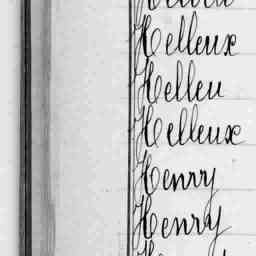 Helleux
Helleu
Helleux
Henry
Henry